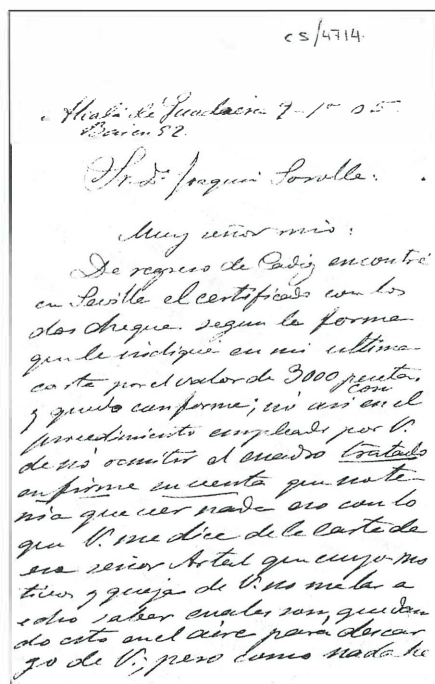 CS/4714.
Alcalá de Guadaira 7-1º 05
Bailen 52.
Sr. Dn Joaquin Sorolla.
Muy señor mio:
De regreso de Cadiz encontré
en Sevilla el certificado con los
dos cheque segun la forma
que le indique en mi ultima
carta por el valor de 3000 pesetas
y quedo conforme; no asi en el con
procedimiento empleado por V.
de no remitir el cuadro tratado
en firme su venta que no te
nia que ver nada eso con lo
que V. me dice de la carta de
ese señor Artal que cuyo mo
tivos y queja de V. no me la a
echo saber cuales son, quedan
do esto en el aire para descar
go de V.; pero como nada he